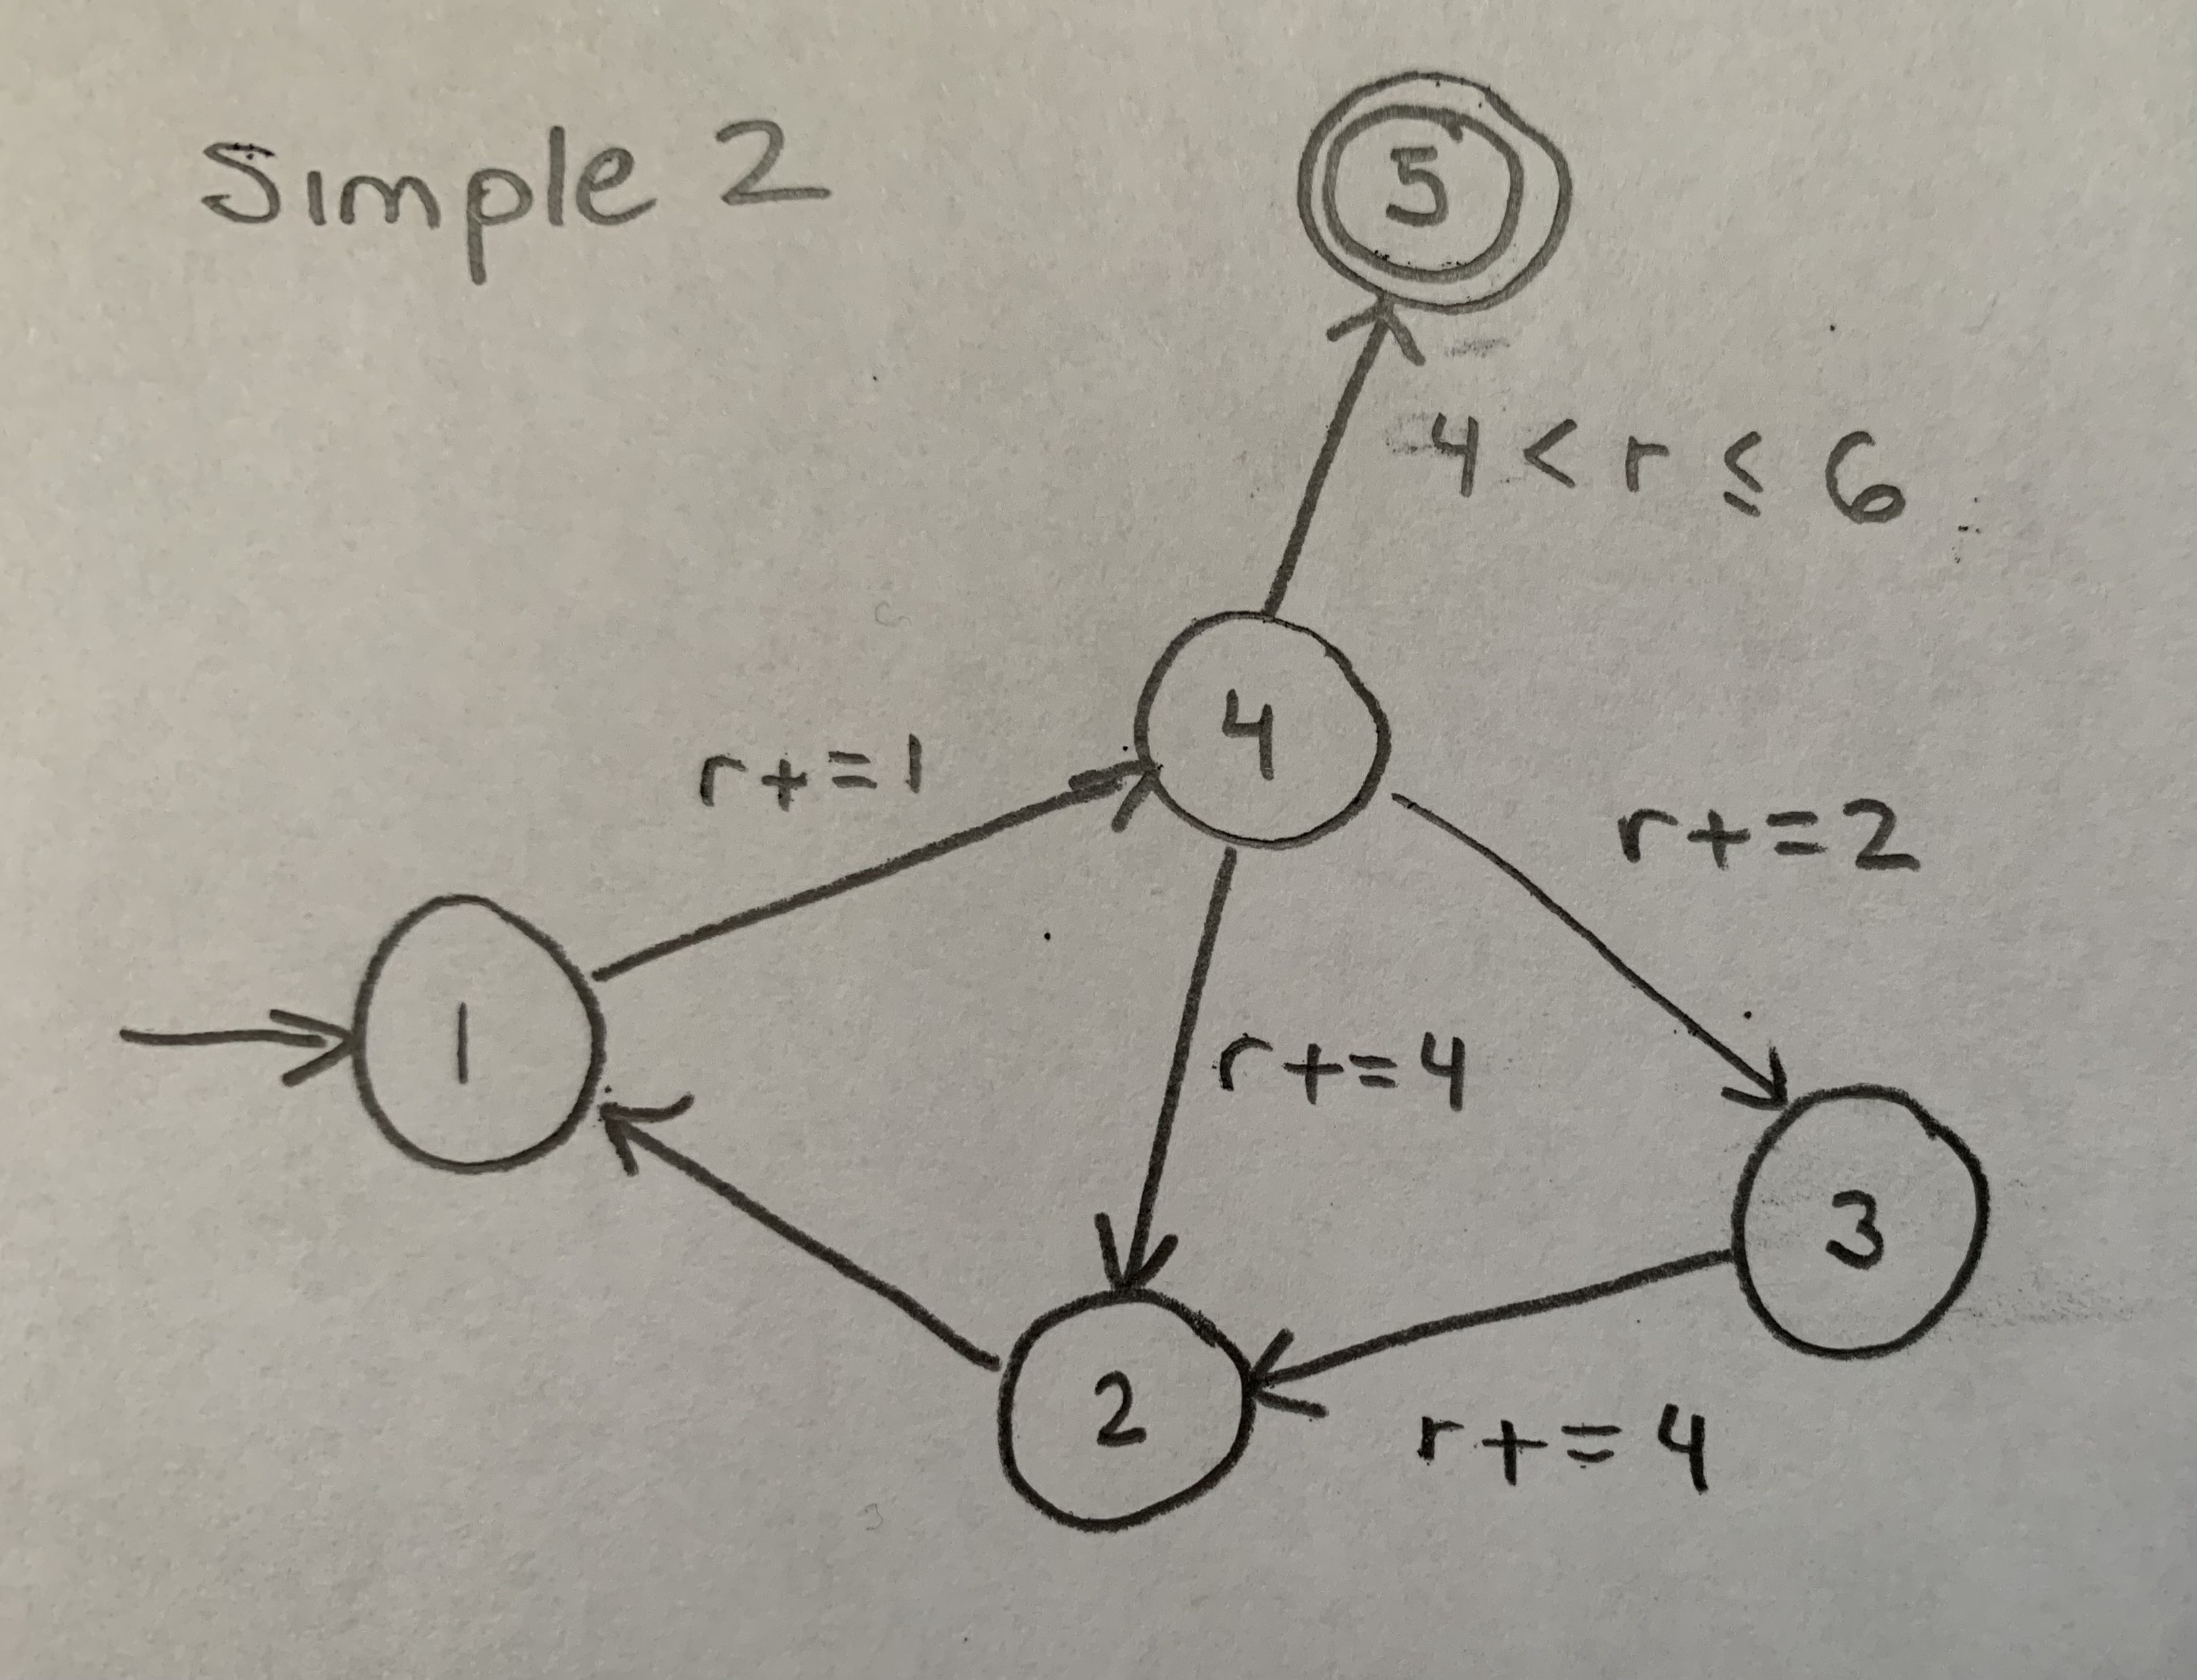 Simple 2
5
4 < r ≤ 6
4
r+=1
r+=2
1
r+=4
3
2
r+=4